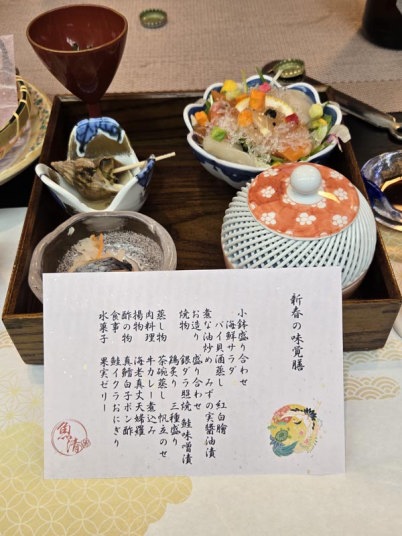 新春の味覚膳
小鉢盛り合わせ
海鮮サラダ
バイ貝酒蒸し 紅白膾
煮な油炒め みずの実醤油漬
お造り 盛り合わせ
焼物 銀ダラ照焼 鮭味噌漬
鶏炙り 三種盛り
蒸し物 茶碗蒸し 帆立のせ
肉料理 牛カレー煮込み
揚物 海老真丈天婦羅
酢の物 真鱈白子ポン酢
食事 鮭イクラおにぎり
水菓子 果実ゼリー
魚清